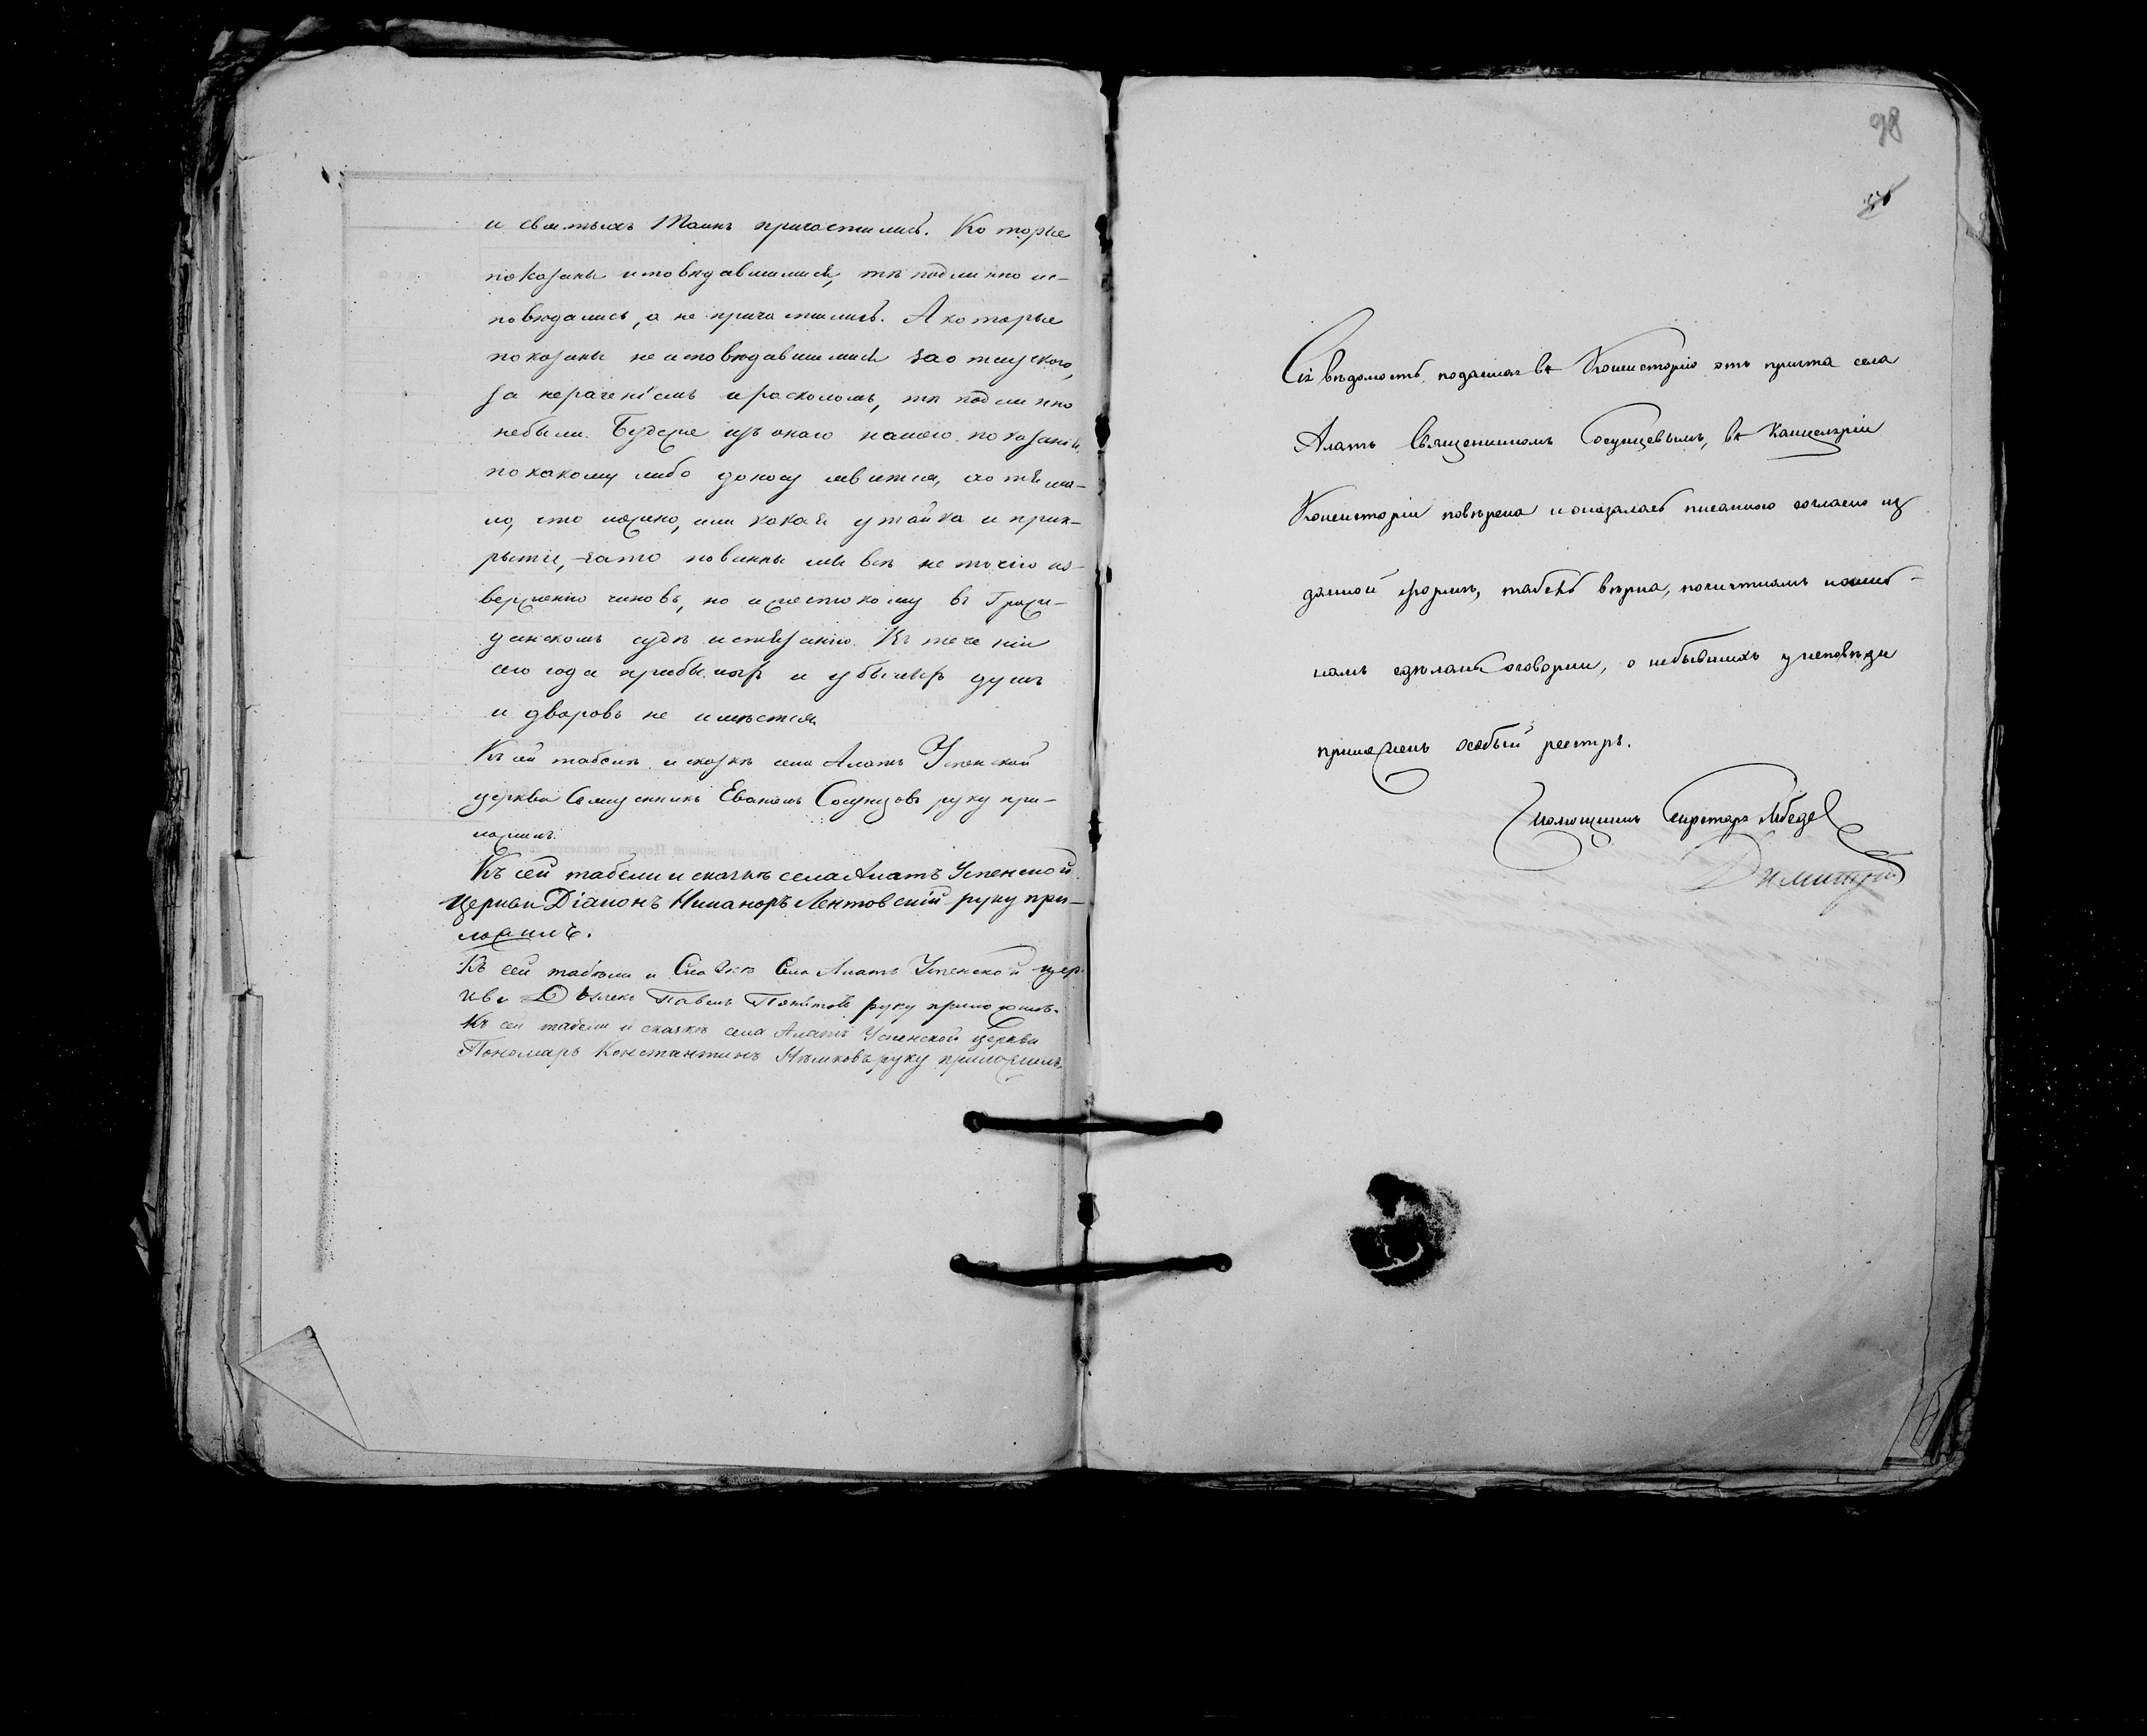 и святыхъ Таинъ причастились. Которые
показаны исповѣдавшимися, тѣ подлинно ис-
повѣдались, а не причастились. А которые
показаны не исповѣдавшимися за отлучкою,
за нераченіемъ и расколомъ, тѣ подлинно
небыли. Будеже изъ онаго нашего показанія,
по какому либо доносу явится, хотя ма-
ло, что ложно, или какая утайка и прик-
рытіе, зато повинны мы всѣ не точію из-
верженію чиновъ, но и жестокому въ Граж-
данскомъ судѣ истязанію. Въ теченіи
сего года прибылыхъ и убылыхъ душъ
и дворовъ не имѣется
Къ сей табели и сказкѣ села Алатъ Успенской
церкви Священникъ Евѳимъ Сосунцовъ руку при-
ложилъ.
Къ сей табели и сказкѣ села Алатъ Успенской
Церкви Діаконъ Никаноръ Лентовскій руку при-
ложилъ.
Къ сей табели и Сказкѣ Села Алатъ Успенской цер-
кви Дьячекъ Павелъ руку приложилъ.
Къ сей табели и сказкѣ села Алатъ Успенской Церкви
Пономарь Константинъ руку приложилъ.
98
Сія вѣдомость, поданная въ Консисторію отъ причта села
Алатъ Священникомъ Сосунцевымъ, въ Канцеляріи
Консисторіи повѣрена и оказалась писанною согласно из
данной формѣ, табель вѣрна, почисткамъ и ошиб-
камъ сдѣланы оговорки, о небывшихъ у исповѣди
приложенъ особый реестръ.
Помощникъ Секретаря Лебедев
Димитрій